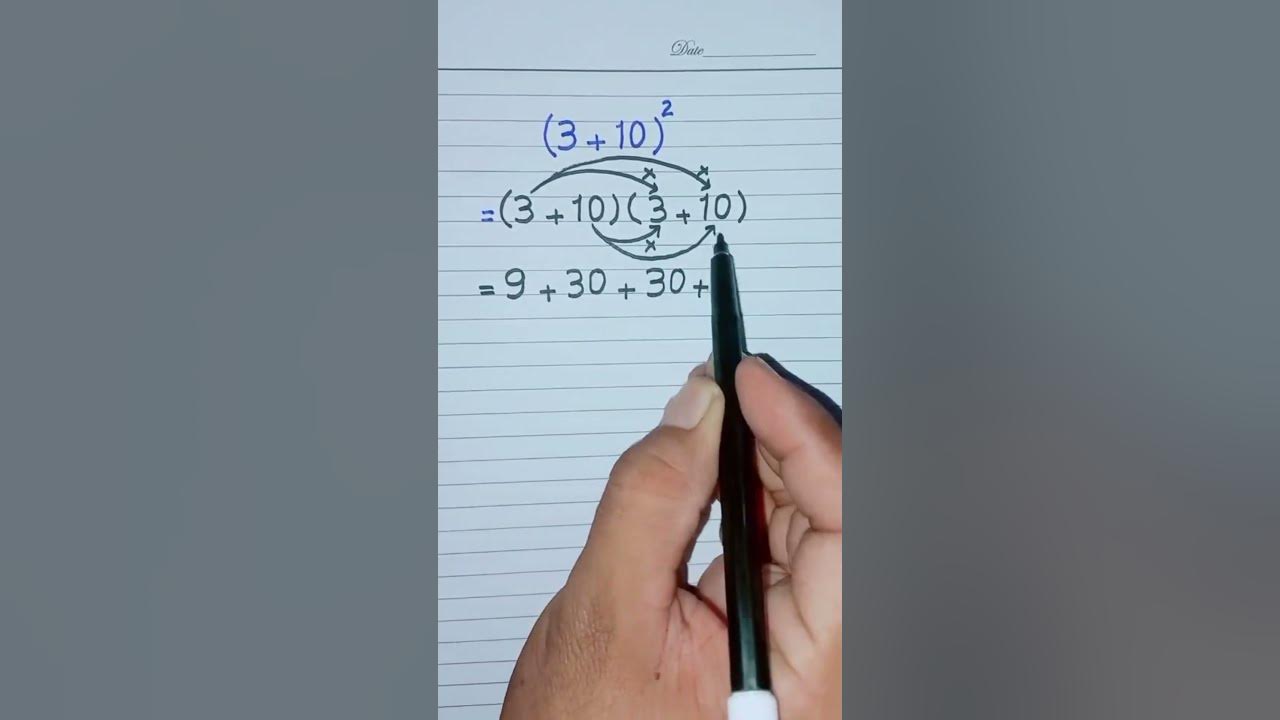 Date
(3 + 10)²
= (3 + 10) (3 + 10)
× × ×
= 9 + 30 + 30 +